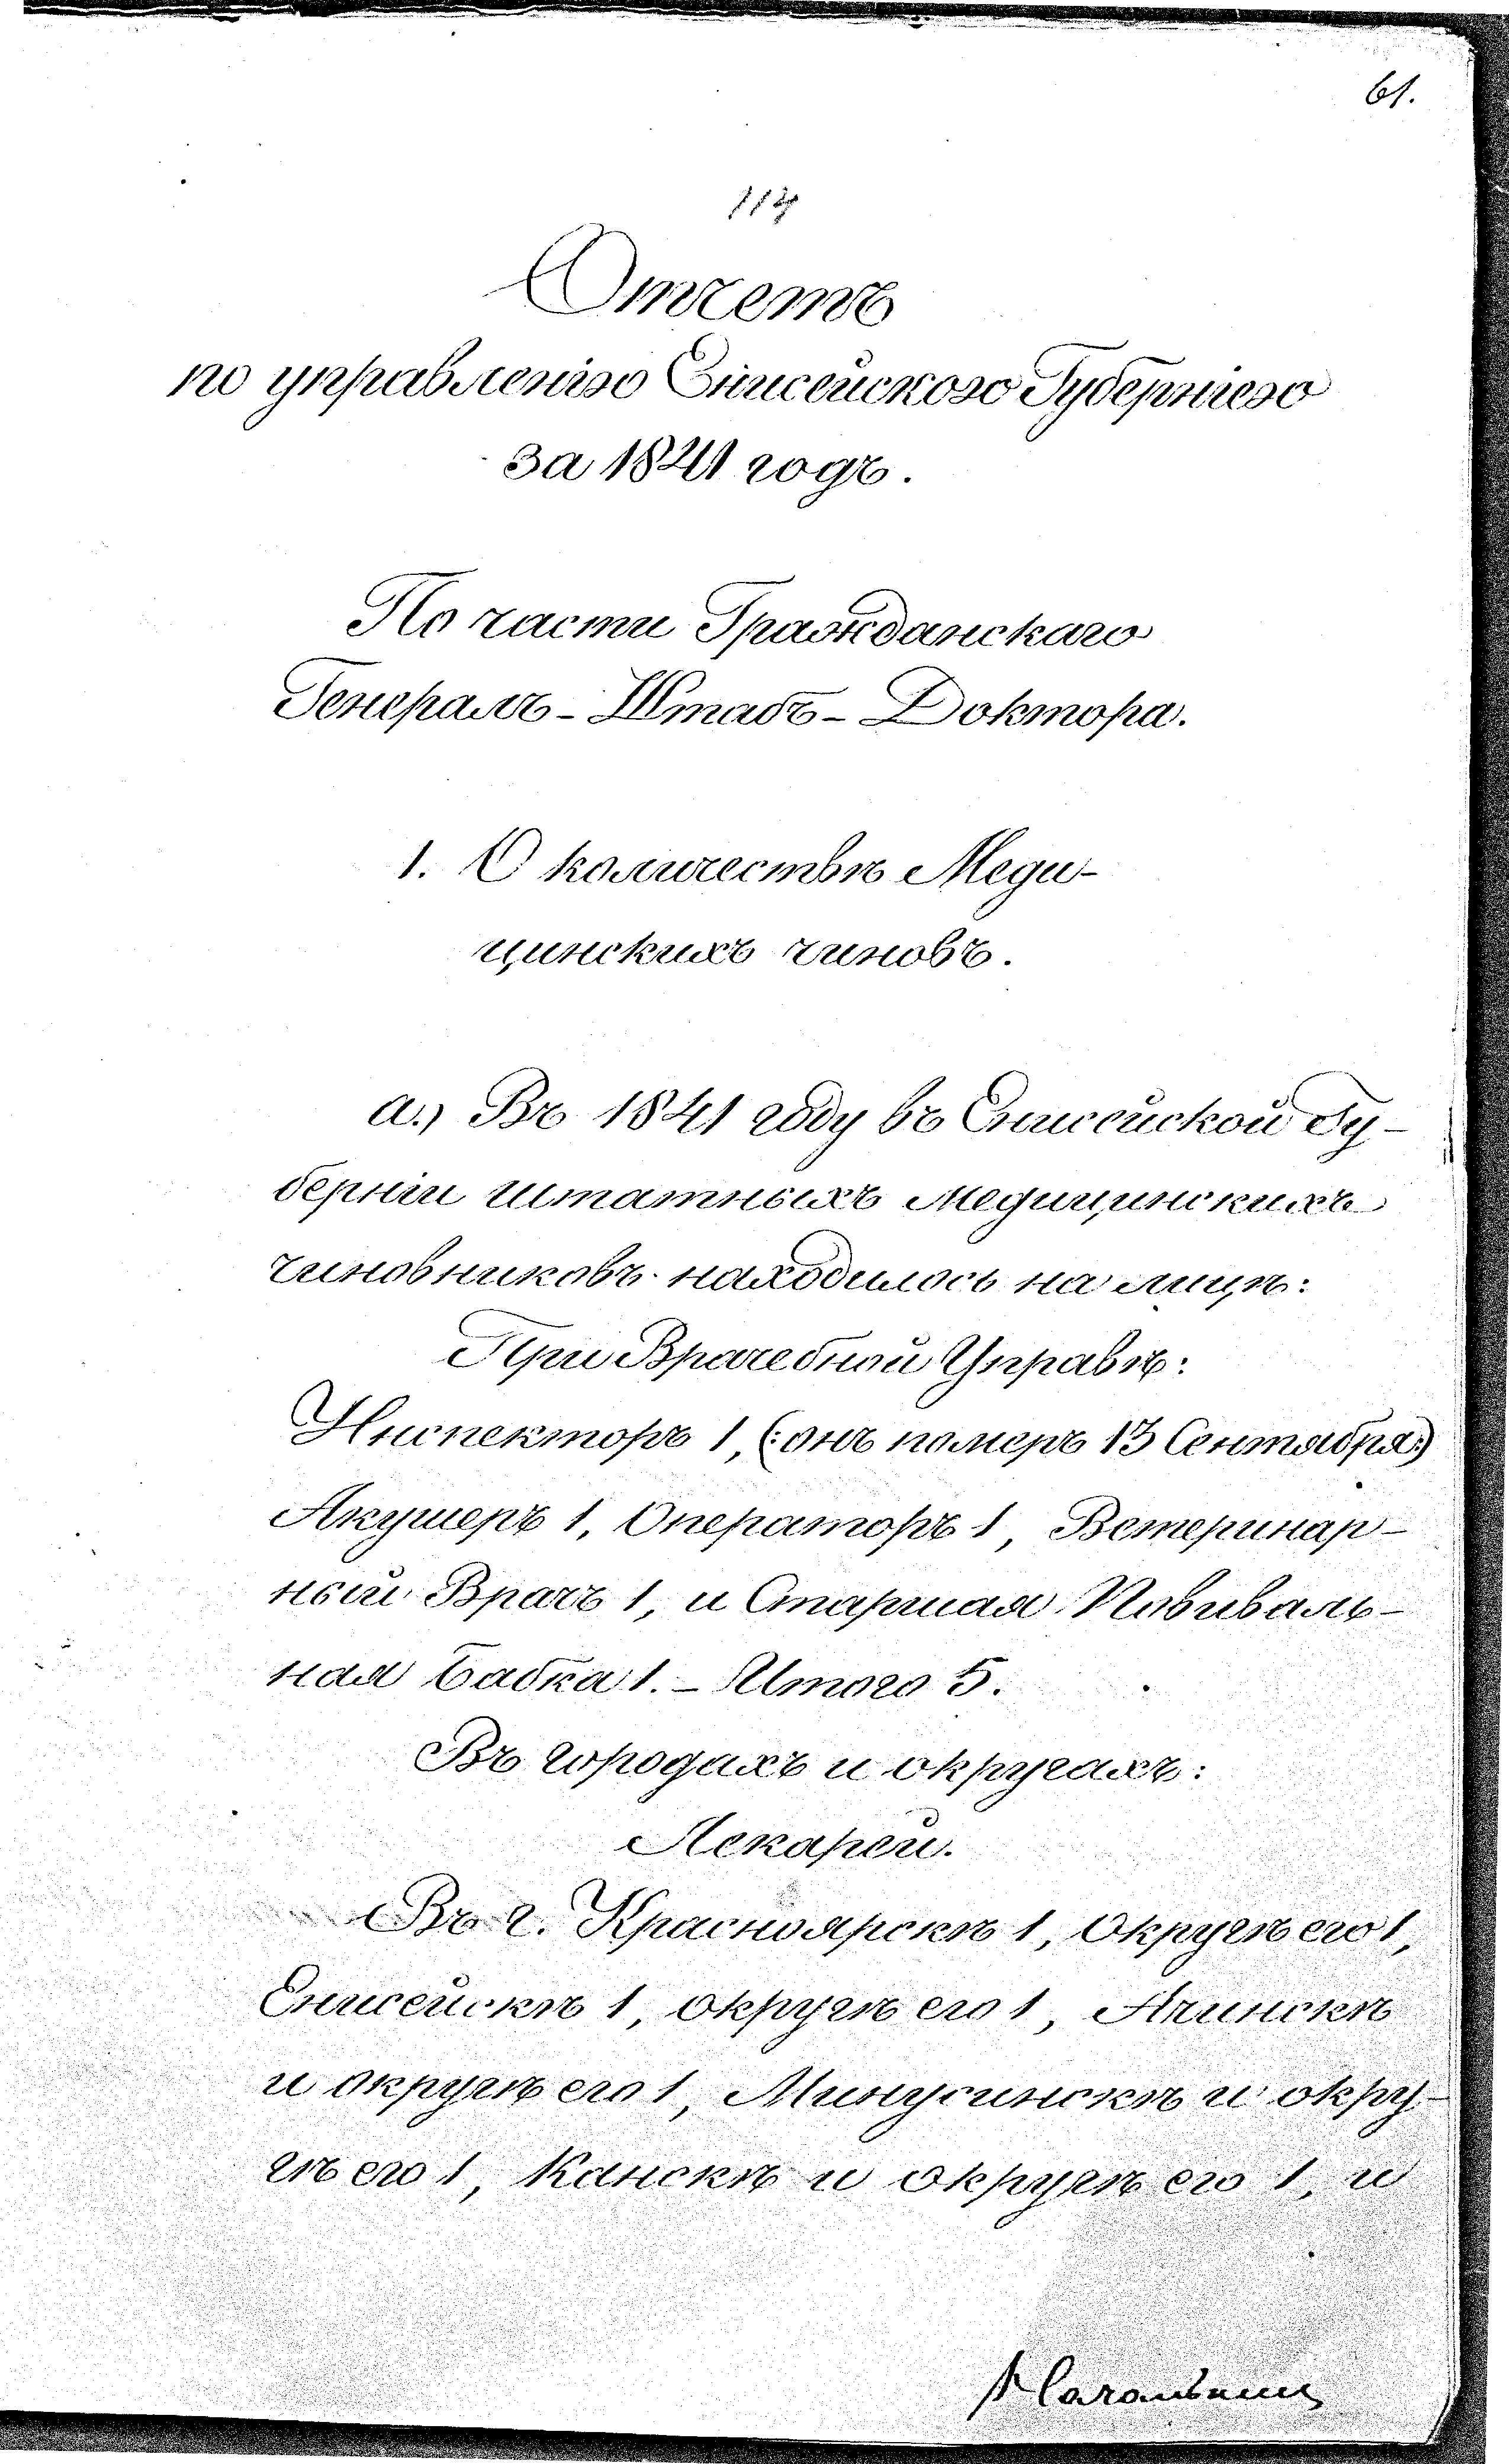 61.
114
Отчетъ
по управленію Енисейского Губерніею
за 1841 годъ.
По части Гражданскаго
Генералъ-Штабъ-Доктора.
1. О количествѣ Меди-
цинскихъ чиновъ.
а.) Въ 1841 году въ Енисейской Гу-
берніи штатныхъ Медицинскихъ
чиновниковъ находилось на лицѣ:
При Врачебной Управѣ:
Инспекторъ 1, (:онъ померъ 13 Сентября:)
Акушеръ 1, Операторъ 1, Ветеринар-
ный Врачъ 1, и Старшая Повиваль-
ная Бабка 1. - Итого 5.
Въ городахъ и округахъ:
Лекарей.
Въ г. Красноярскѣ 1, Округѣ его 1,
Енисейскѣ 1, округѣ его 1, Ачинскѣ
и округѣ его 1, Минусинскѣ и окру-
гѣ его 1, Канскѣ и округѣ его 1, и